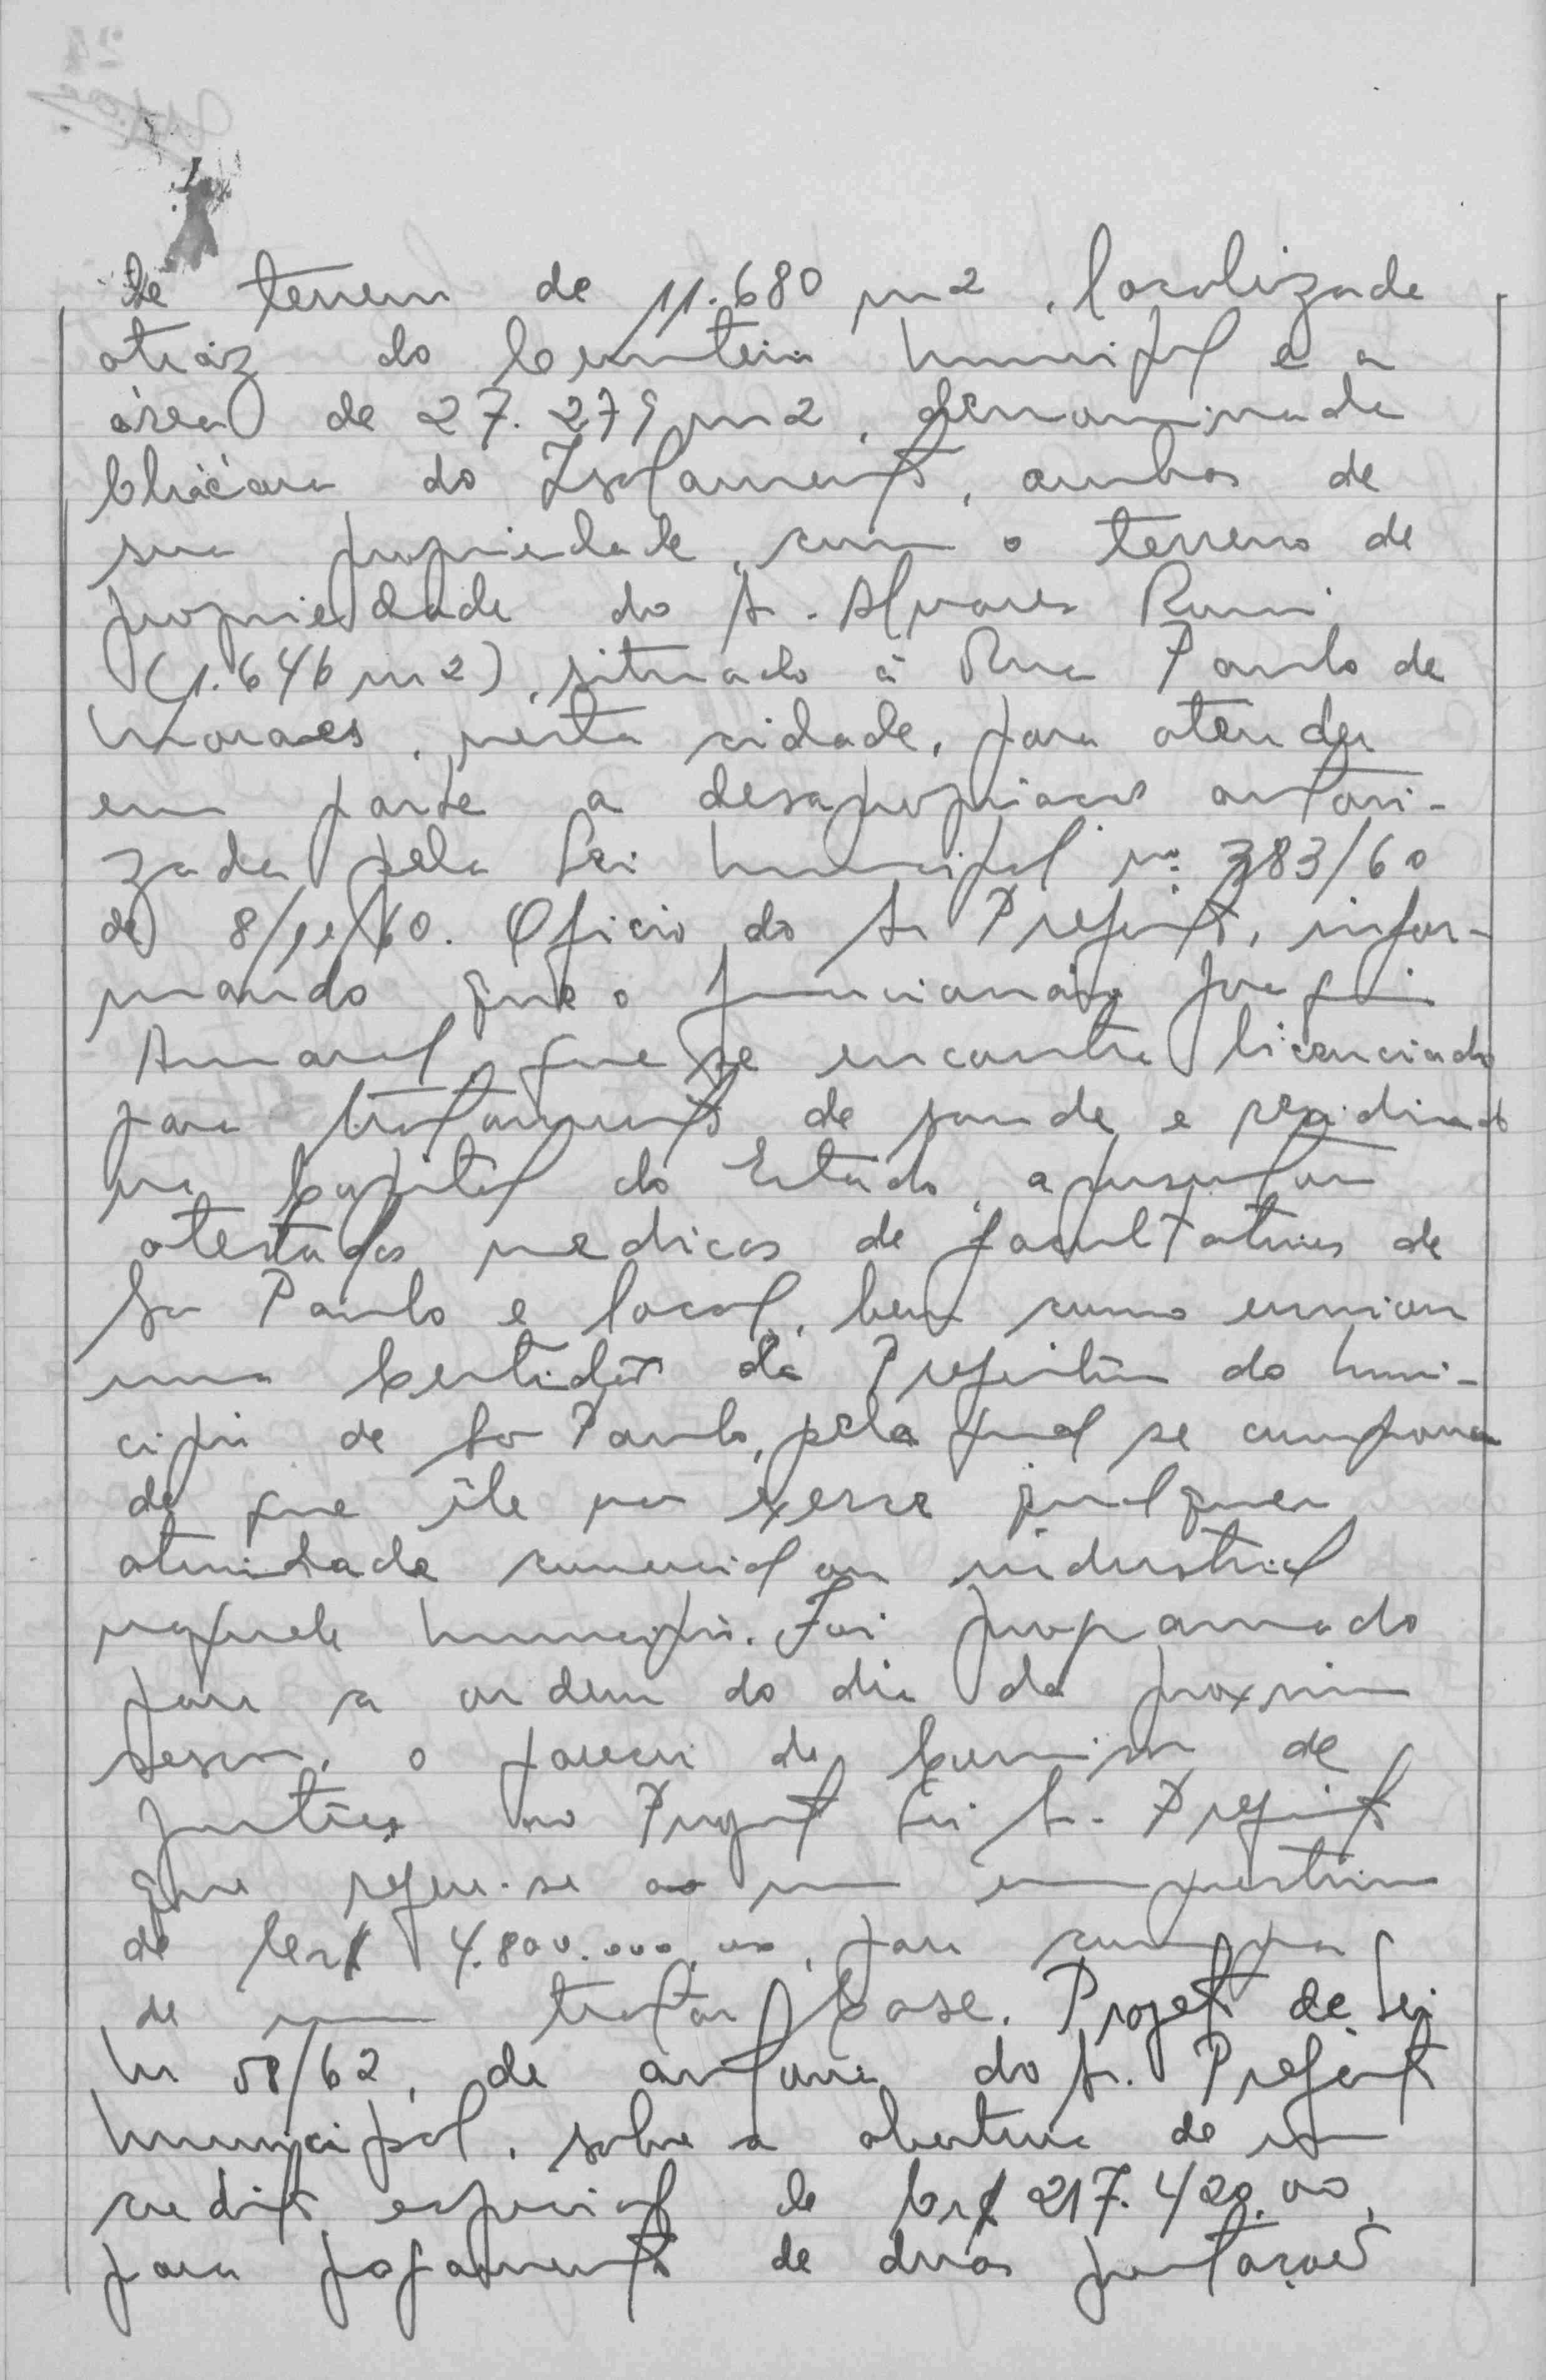 de terreno de 11.680 m2, localizada
atráz do Cemiterio Municipal e a
área de 27.279 m2, denominada
Chácara do Isolamento, ambas de
sua propriedade, com o terreno de
propriedade do Sr. Alvares
(1.646 m2), situado á Rua Paulo de
Moraes, nesta cidade, para atender
em parte a desapropriacao autori-
zada pela Lei Municipal nº 383/60
de 8/11/60. Oficio do Sr Prefeito, infor-
mando que o funcionário Joaquim
Amaral, que se encontra licenciado
para tratamento de saude e residindo
na Capital do Estado, apresentou
atestados medicos de facultativos de
Sao Paulo e local, bem como enviou
uma Certidão da Prefeitura do Muni-
cipio de Sao Paulo, pela qual se comprova
de que êle nao exerce qualquer
atividade comercial ou industrial
naquele Municipio. Foi programado
para a ordem do dia da proxima
sessao, o parecer da Comissao de
Justiça no Projeto Lei Sr. Prefeito
que refere-se ao um emprestimo
de Cr$ 4.800.000,00, para compra
de um trator Case. Projeto de Lei
Nr 58/62, de autoria do Sr. Prefeito
Municipal, sobre a abertura de um
credito especial de Cr$ 217.420,00,
para pagamento de duas prestaçoes